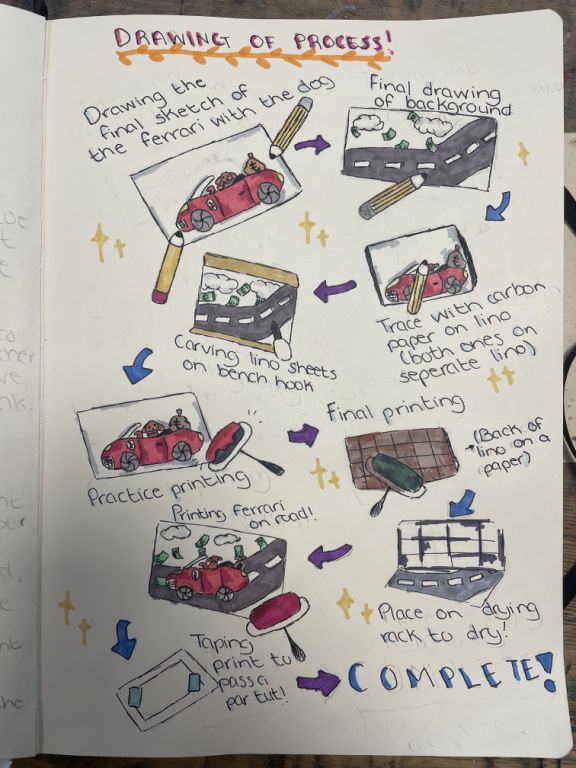 DRAWING OF PROCESS!
Drawing the
final sketch of
the ferrari with the dog
Final drawing
of background
Trace with carbon
paper on lino
(both ones on
seperate lino)
Carving lino sheets
on bench hook
Practice printing
Final printing
(Back of
lino on a
paper)
Place on drying
rack to dry!
Printing ferrari
on road!
Taping
print to
passa
par tut!
COMPLETE!